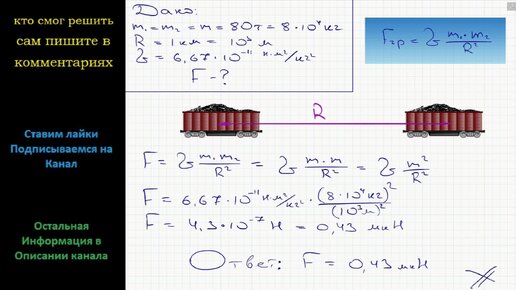 кто смог решить
сам пишите в
комментариях
Ставим лайки
Подписываемся на
Канал
Остальная
Информация в
Описании канала
Дано:
m₁ = m₂ = m = 80т = 8·10⁴ кг
R = 1 км = 10³ м
G = 6,67·10⁻¹¹ Н·м²/кг²
F - ?
Fгр = G m₁·m₂/R²
R
F = G m₁m₂/R² = G m·m/R² = G m²/R²
F = 6,67·10⁻¹¹ Н·м²/кг² · (8·10⁴кг)²/(10³м)²
F = 4,3·10⁻⁷ Н = 0,43 мкН
Ответ: F = 0,43 мкН